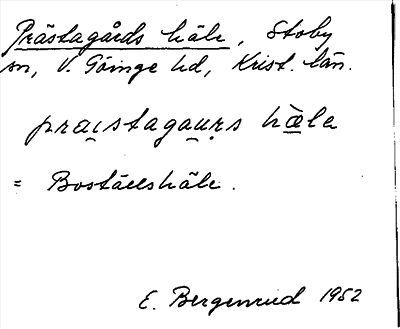 Prästagårds häle, Stoby
sn, V. Göinge hd, Krist. län.
prai̯stagau̯ṛs hæ̀le
= Boställshäle.
E. Bergenrud 1952